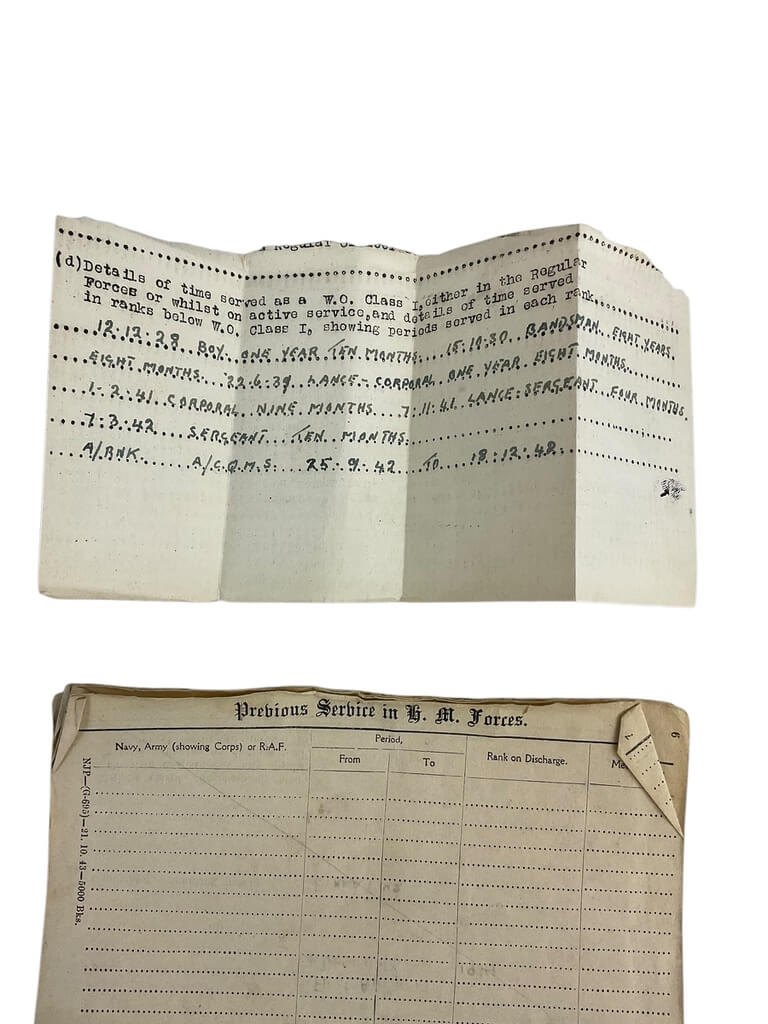 (d)Details of time served as a W.O. Class I,either in the Regular
Forces or whilst on active service,and details of time served
in ranks below W.O. Class I, showing periods served in each rank.
12.12.28 BOY. ONE YEAR TEN MONTHS. 15.10.30 BANDSMAN EIGHT YEARS.
EIGHT MONTHS. 22.6.39 LANCE-CORPORAL ONE YEAR EIGHT MONTHS.
1.2.41 CORPORAL NINE MONTHS 7.11.41 LANCE-SERGEANT FOUR MONTHS.
7.3.42 SERGEANT TEN MONTHS.
A/RNK. A/C.Q.M.S. 25.9.42 TO 18.12.42.
Previous Service in H. M. Forces.
Navy, Army (showing Corps) or R.A.F.
Period,
From
To
Rank on Discharge.
NJP—(G-693)—21. 10. 43—5000 Bks.
7
6